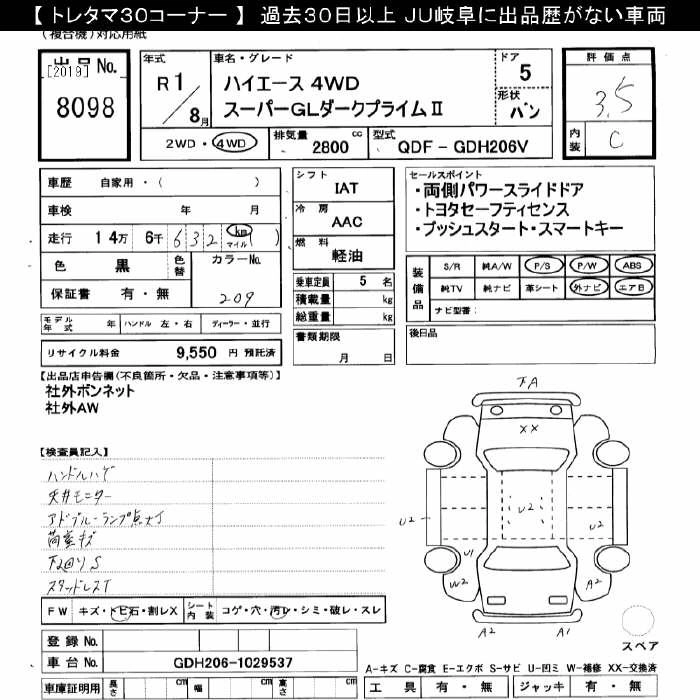 【トレタマ30コーナー】 過去30日以上 JU岐阜に出品歴がない車両
(複合機)対応用紙
出品 No.
[2019]
8098
年式
R1/8月
車名・グレード
ハイエース 4WD
スーパーGLダークプライムⅡ
ドア
5
形状
バン
評価点
3.5
内装
C
2WD・4WD
排気量
2800 cc
型式
QDF - GDH206V
車歴 自家用・( )
車検 年 月
走行 14万 6千 632 km マイル ( )
色 黒
色替
カラーNo.
209
保証書 有・無
シフト
IAT
冷房
AAC
燃料
軽油
乗車定員 5 名
積載量 kg
総重量 kg
書類期限
月 日
セールスポイント
・両側パワースライドドア
・トヨタセーフティセンス
・プッシュスタート・スマートキー
装備品
S/R 純A/W P/S P/W ABS
純TV 純ナビ 革シート 外ナビ エアB
ナビ型番:
後日品
モデル年式 年 ハンドル 左・右 ディーラー・並行
リサイクル料金 9,550 円 預託済
【出品店申告欄(不良箇所・欠品・注意事項等)】
社外ボンネット
社外AW
【検査員記入】
ハンドルハゲ
天井モニター
アドブルーランプ点灯
荷室キズ
スタッドレス
下A
XX
U2
U2
U2
U1
W2
A2
A2
A1
スペア
FW キズ・トビ石・割レX
シート内装 コゲ・穴・汚レ・シミ・破レ・スレ
登録 No.
車台 No. GDH206-1029537
車庫証明用 長さ cm 幅 cm 高さ cm
A-キズ C-腐食 E-エクボ S-サビ U-凹ミ W-補修 XX-交換済
工具 有・無 ジャッキ 有・無